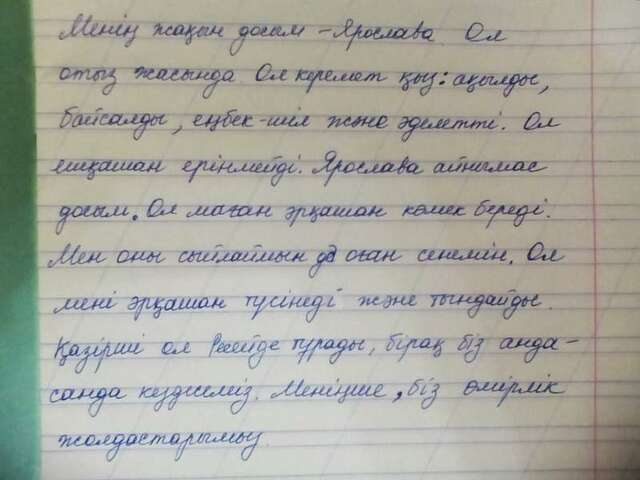 Менің жақын досым – Ярослава. Ол
отыз жасында. Ол керемет қыз: ақылды,
байсалды, еңбек-шіл және әделетті. Ол
ешқашан ерінмейді. Ярослава айнымас
досым. Ол маған әрқашан көмек береді.
Мен оны сыйлаймын да оған сенемін. Ол
мені әрқашан түсінеді және тыңдайды.
Қазірші ол Ресейде тұрады, бірақ біз анда-
санда кездесеміз. Меніңше, біз өмірлік
жолдастармыз.